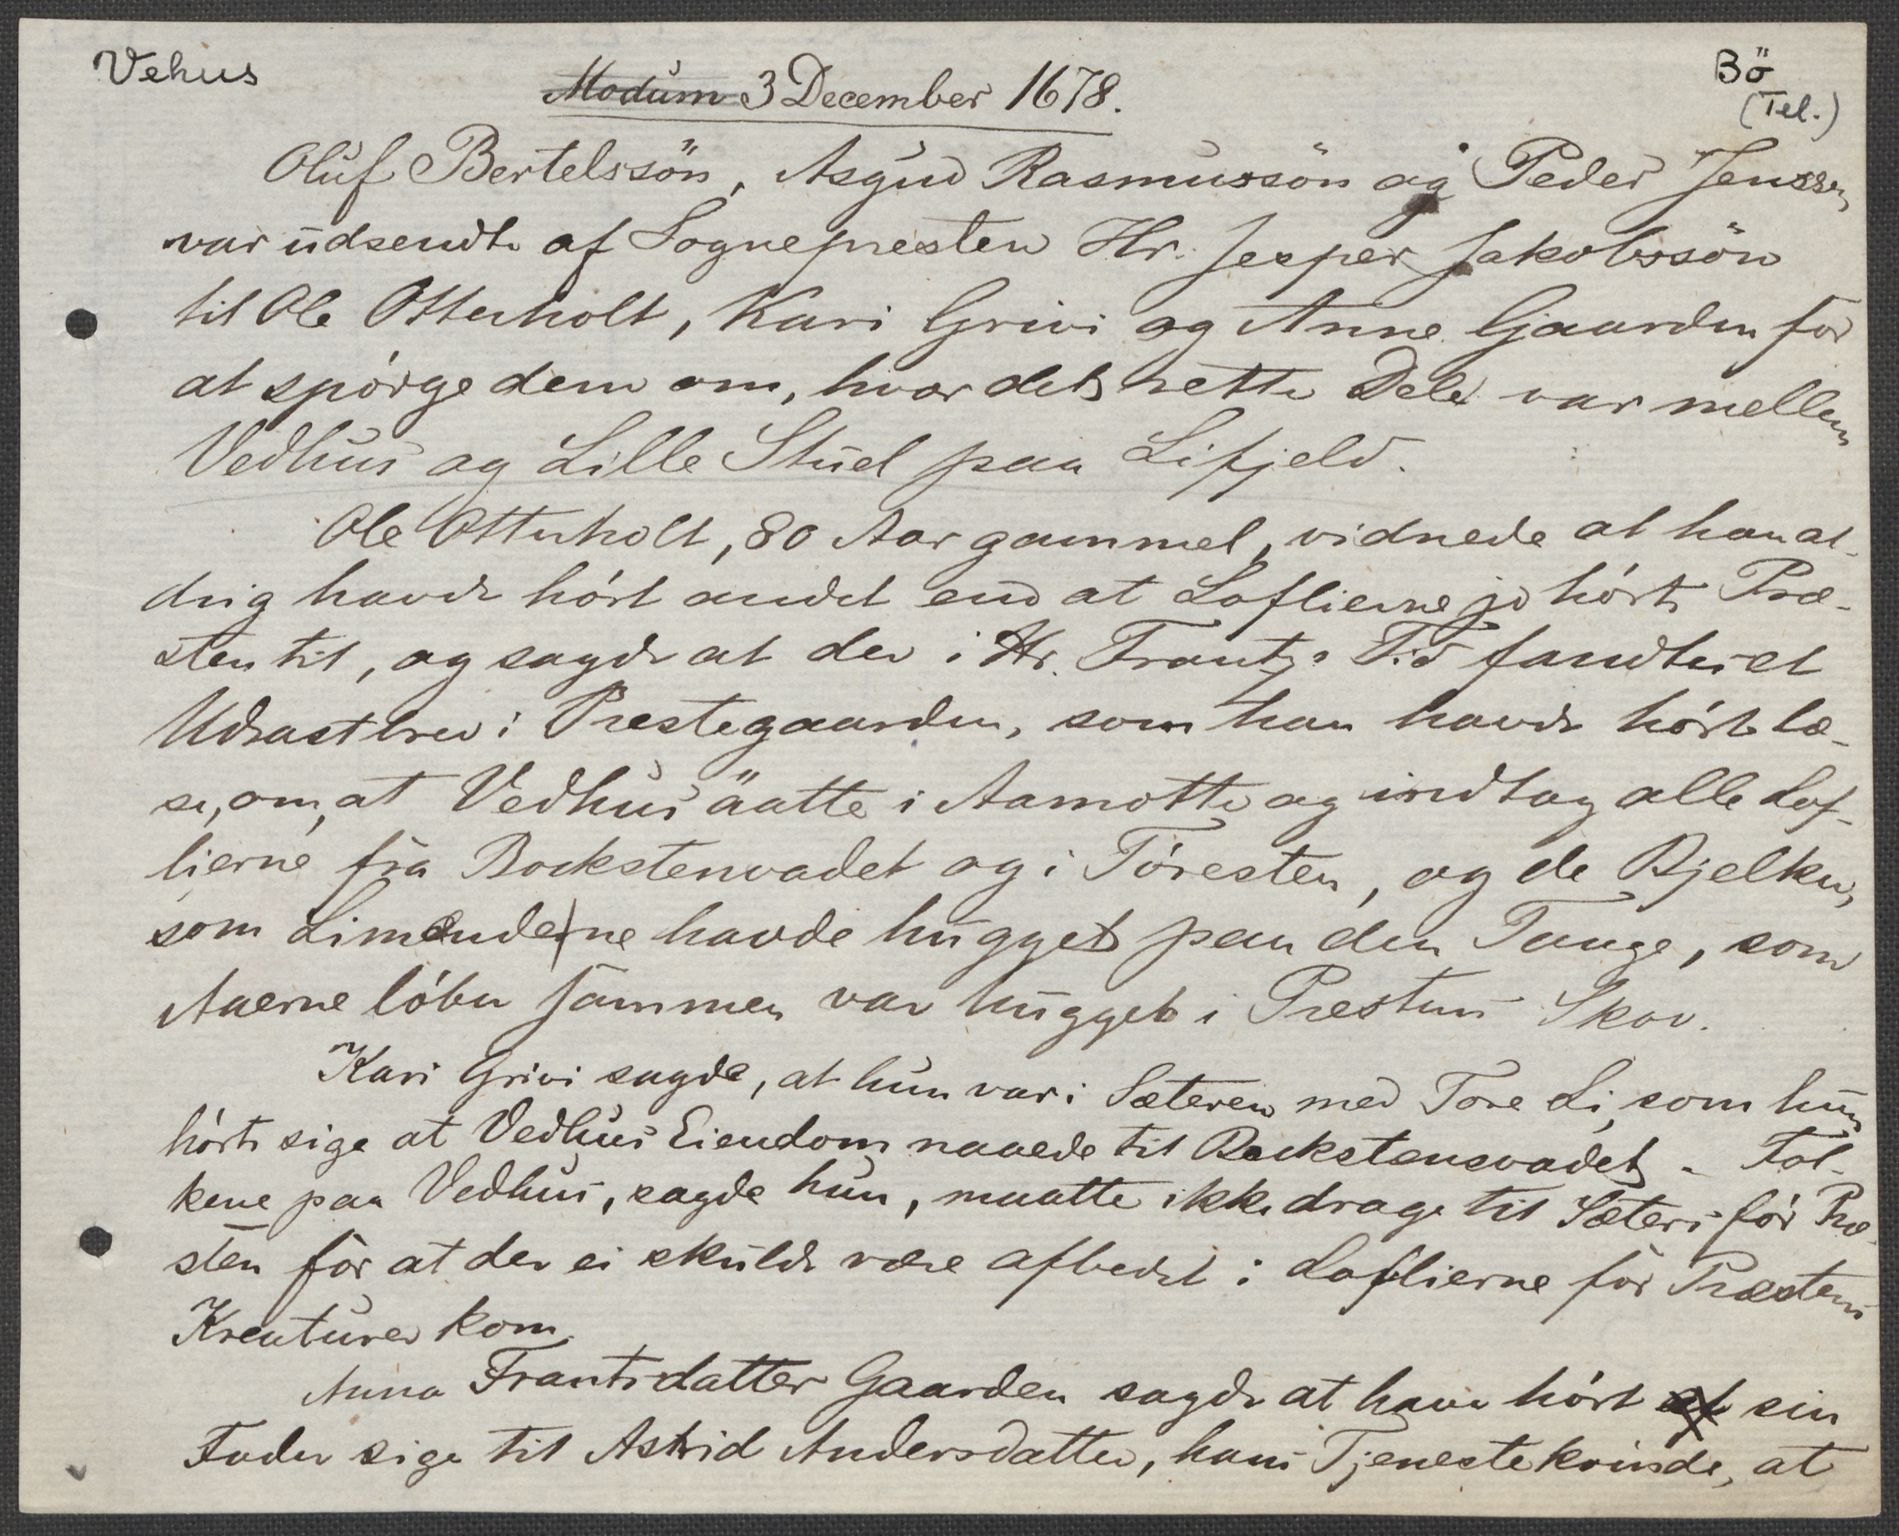 Vehus
Bö
(Tel.)
Modum 3 December 1678.
Oluf Bertelssön, Asgud Rasmussön og Peder Jenssen
var udsendte af Sognepresten Hr. Jesper Jakobssön
til Ole Otterholt, Kari Grivi og Anne Gjaarden for
at spörge dem om, hvor det rette Dele var mellem
Vedhus og Lille Stuel paa Lifjeld.
Ole Otterholt, 80 Aar gammel, vidnede at han al-
drig havde hört andet end at Loflierne jo hörte Præ-
sten til, og sagde at der i Hr. Frantz's Tid fandtes et
Udkastbrev i Prestegaarden, som han havde hört læ-
se, om, at Vedhus åatte i Aamotte og indtog alle Lof-
lierne fra Bockstenvadet og i Töresten, og de Bjelker,
som Limænderne havde hugget paa den Tange, som
Aaerne löber sammen var hugget i Prestens Skov.
Kari Grivi sagde, at hun var i Sæteren med Tore Li, som hun
hörte sige at Vedhus Eiendom naaede til Bockstensvadet. Fol-
kene paa Vedhus, sagde hun, maatte ikke drage til Sæters för Præ-
sten för at der ei skulde være afbedet i Loflierne för Præstens
Kreaturer kom.
Anna Frantsdatter Gaarden sagde at have hört sin
Fader sige til Astrid Andersdatter, hans Tjenestekvinde, at